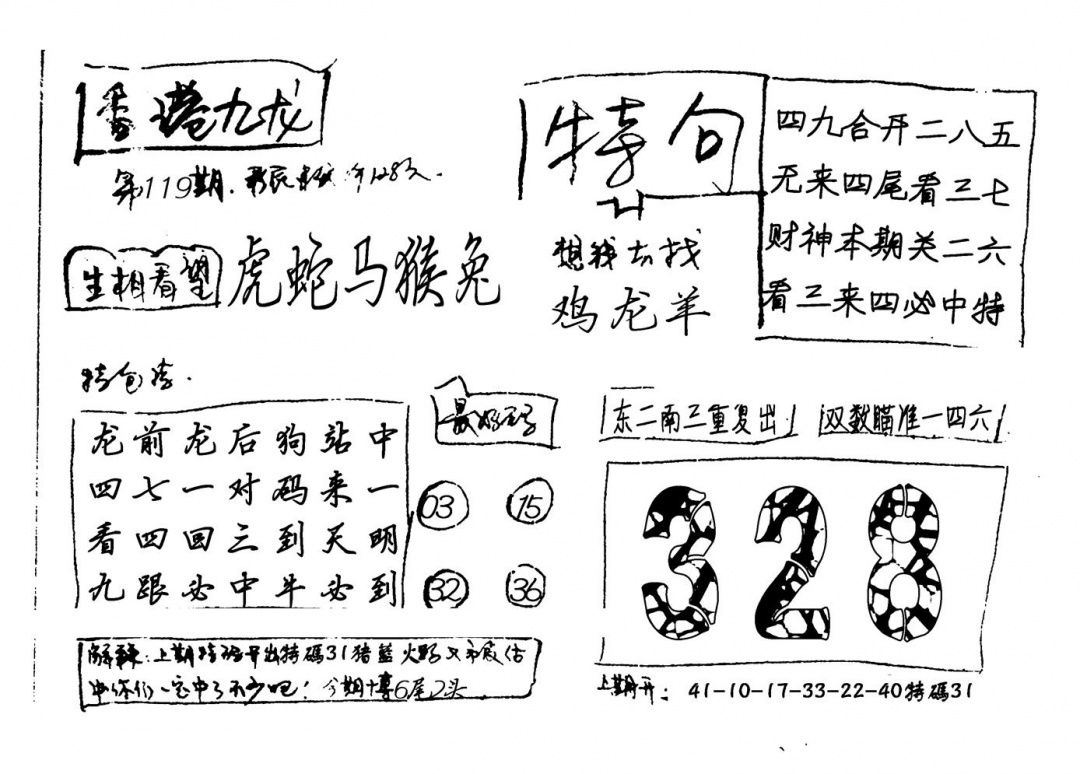 香港九龙
第119期.
特句
四九合开二八五
无来四尾看三七
财神本期关二六
看三来四必中特
生相看望
虎蛇马猴兔
想我去找
鸡龙羊
特包
龙前龙后狗站中
四七一对码来一
看四回三到天明
九跟必中牛必到
最好
03 15
32 36
东二南三重复出
双数瞄准一四六
328
解释:上期特码开出特碼31猪藍火
中你们一定中了不少吧!今期博6尾2头
上期开: 41-10-17-33-22-40特碼31